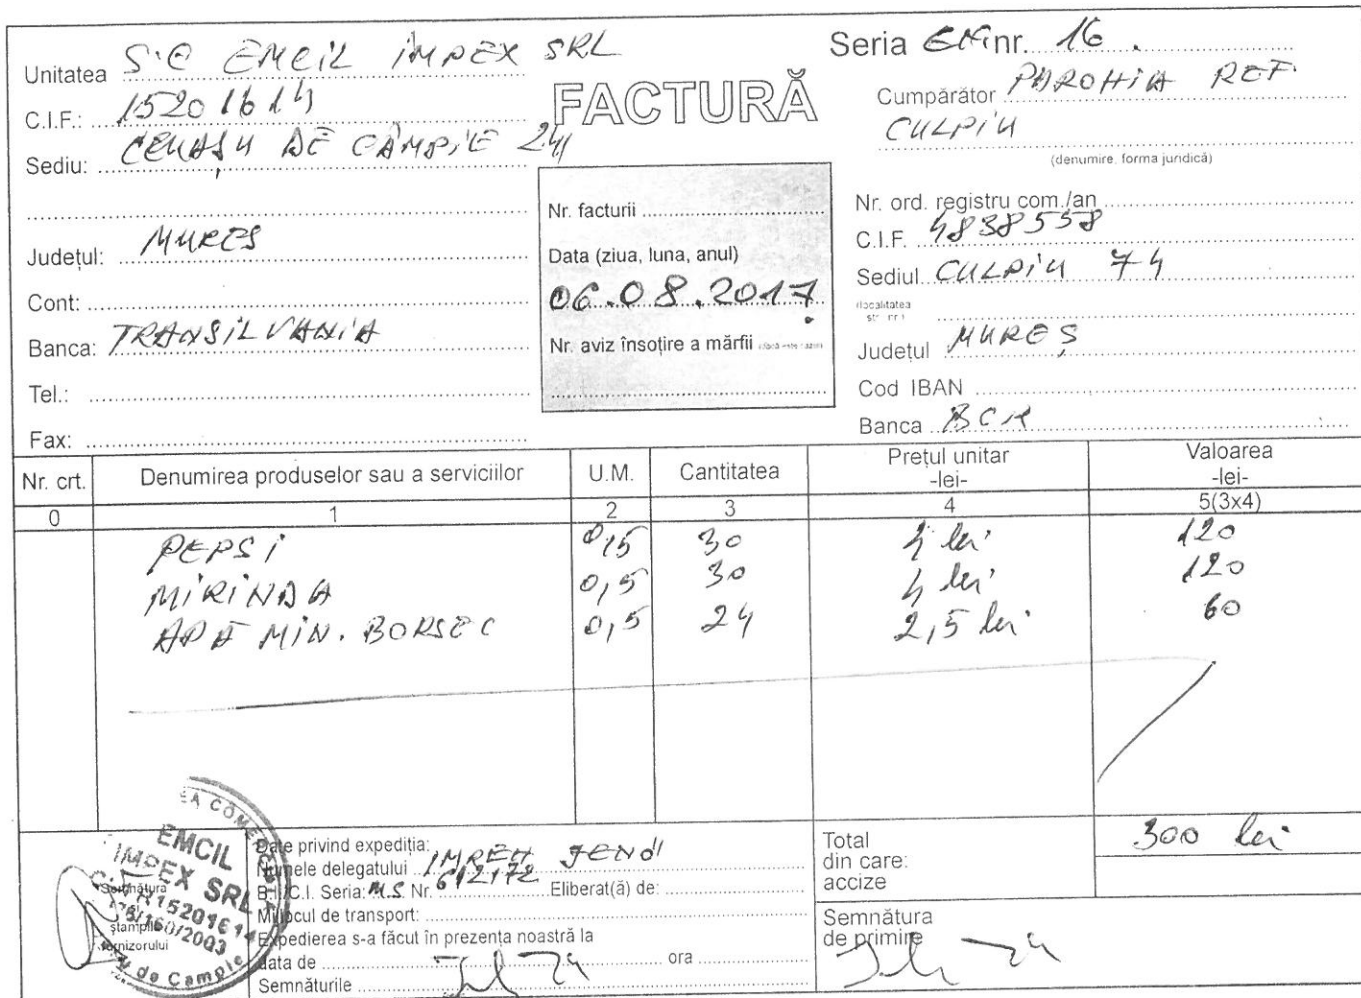 Unitatea S.C EMCIL IMPEX SRL
C.I.F.: 15201614
Sediu: CEUAȘU DE CÂMPIE 24
Județul: MUREȘ
Cont:
Banca: TRANSILVANIA
Tel.:
Fax:
FACTURĂ
Nr. facturii
Data (ziua, luna, anul)
06.08.2017
Nr. aviz însoțire a mărfii
Seria EM nr. 16.
Cumpărător PAROHIA REF.
CULPIU
(denumire, forma juridică)
Nr. ord. registru com./an
C.I.F. 4838558
Sediul CULPIU 74
(localitatea
str. nr.)
Județul MUREȘ
Cod IBAN
Banca BCR
Nr. crt. Denumirea produselor sau a serviciilor U.M. Cantitatea Prețul unitar -lei- Valoarea -lei-
0 1 2 3 4 5(3x4)
PEPSI 0,5 30 4 lei 120
MIRINDA 0,5 30 4 lei 120
APĂ MIN. BORSEC 0,5 24 2,5 lei 60
EMCIL
IMPEX SRL
15201614
/160/2003
de Campie
Semnătura
ștampila
furnizorului
Date privind expediția:
Numele delegatului IMREH JENŐ
B.I./C.I. Seria: M.S Nr. 612172 Eliberat(ă) de:
Mijlocul de transport:
Expedierea s-a făcut în prezența noastră la
data de ora
Semnăturile
Total 300 lei
din care:
accize
Semnătura
de primire